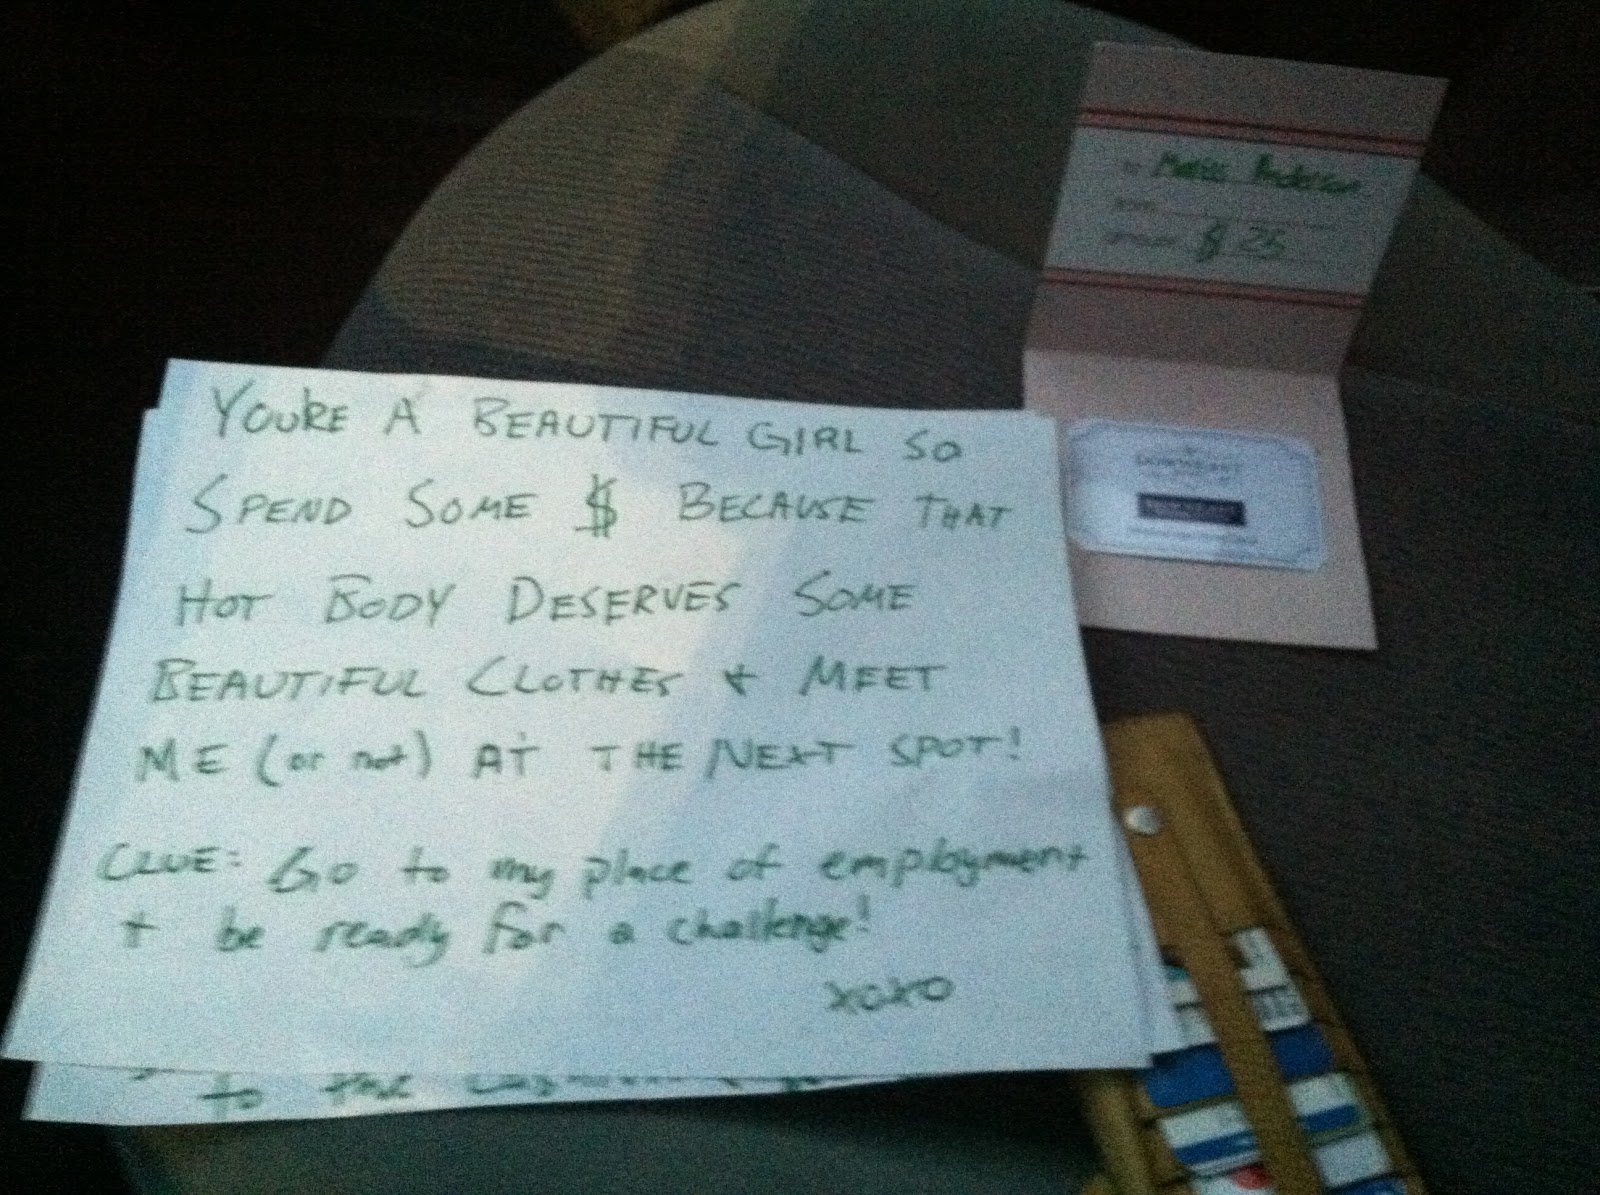 YOURE A BEAUTIFUL GIRL SO
SPEND SOME $ BECAUSE THAT
HOT BODY DESERVES SOME
BEAUTIFUL CLOTHES + MEET
ME (or not) AT THE NEXT SPOT!
CLUE: Go to my place of employment
+ be ready for a challenge!
xoxo
to the
$ 25
DOWNEAST